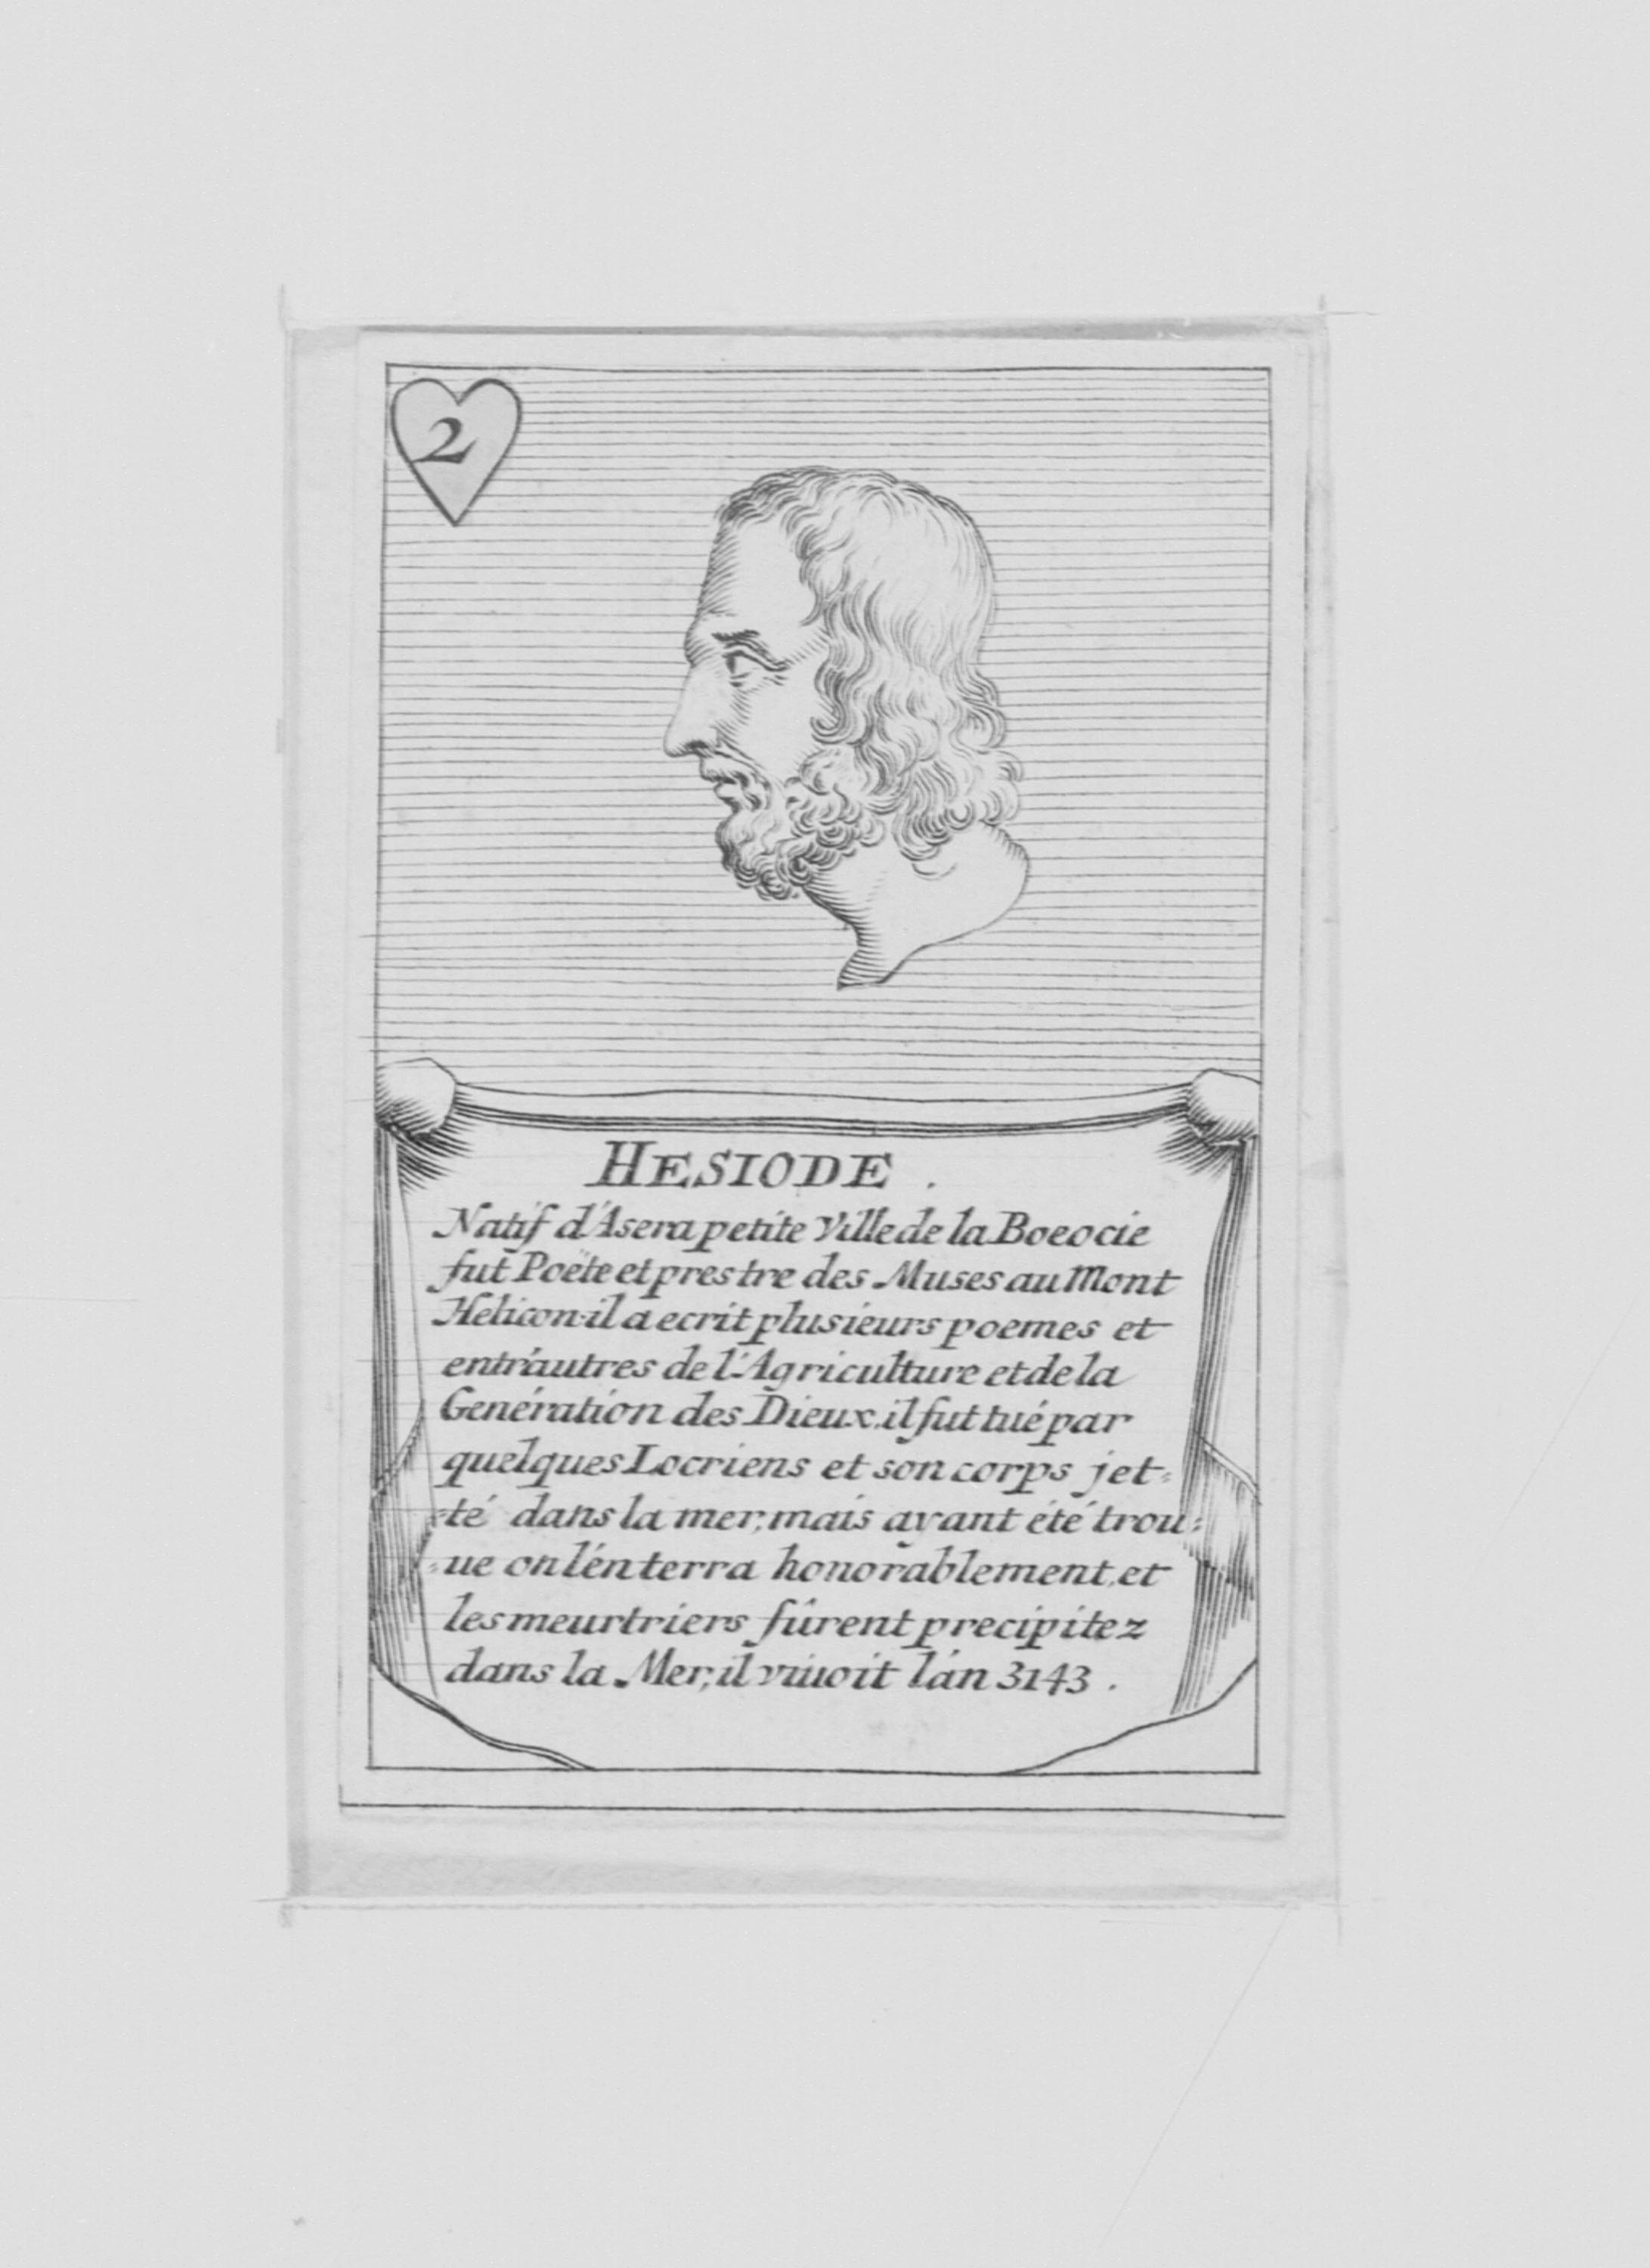 2
HESIODE .
Natif d'Asera petite Ville de la Boeocie
fut Poëte et prestre des Muses au Mont
Helicon. il a ecrit plusieurs poemes et
entr'autres de l'Agriculture et de la
Genération des Dieux. il fut tué par
quelques Locriens et son corps jet=
=té dans la mer; mais ayant été trou=
=ue on l'énterra honorablement, et
les meurtriers fûrent precipitez
dans la Mer; il viuoit l'an 3143 .